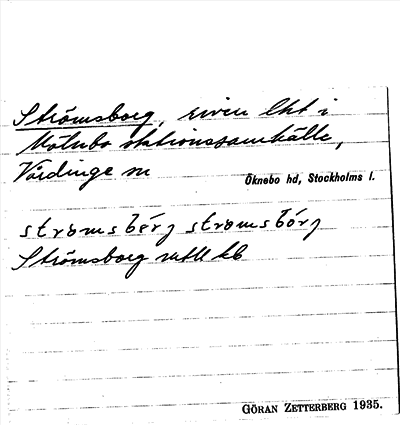 Strömsborg, riven lht i
Mölnbo stationssamhälle,
Vårdinge sn
Öknebo hd, Stockholms l.
strömsbörj strömsbórj
Strömsborg
GÖRAN ZETTERBERG 1935.